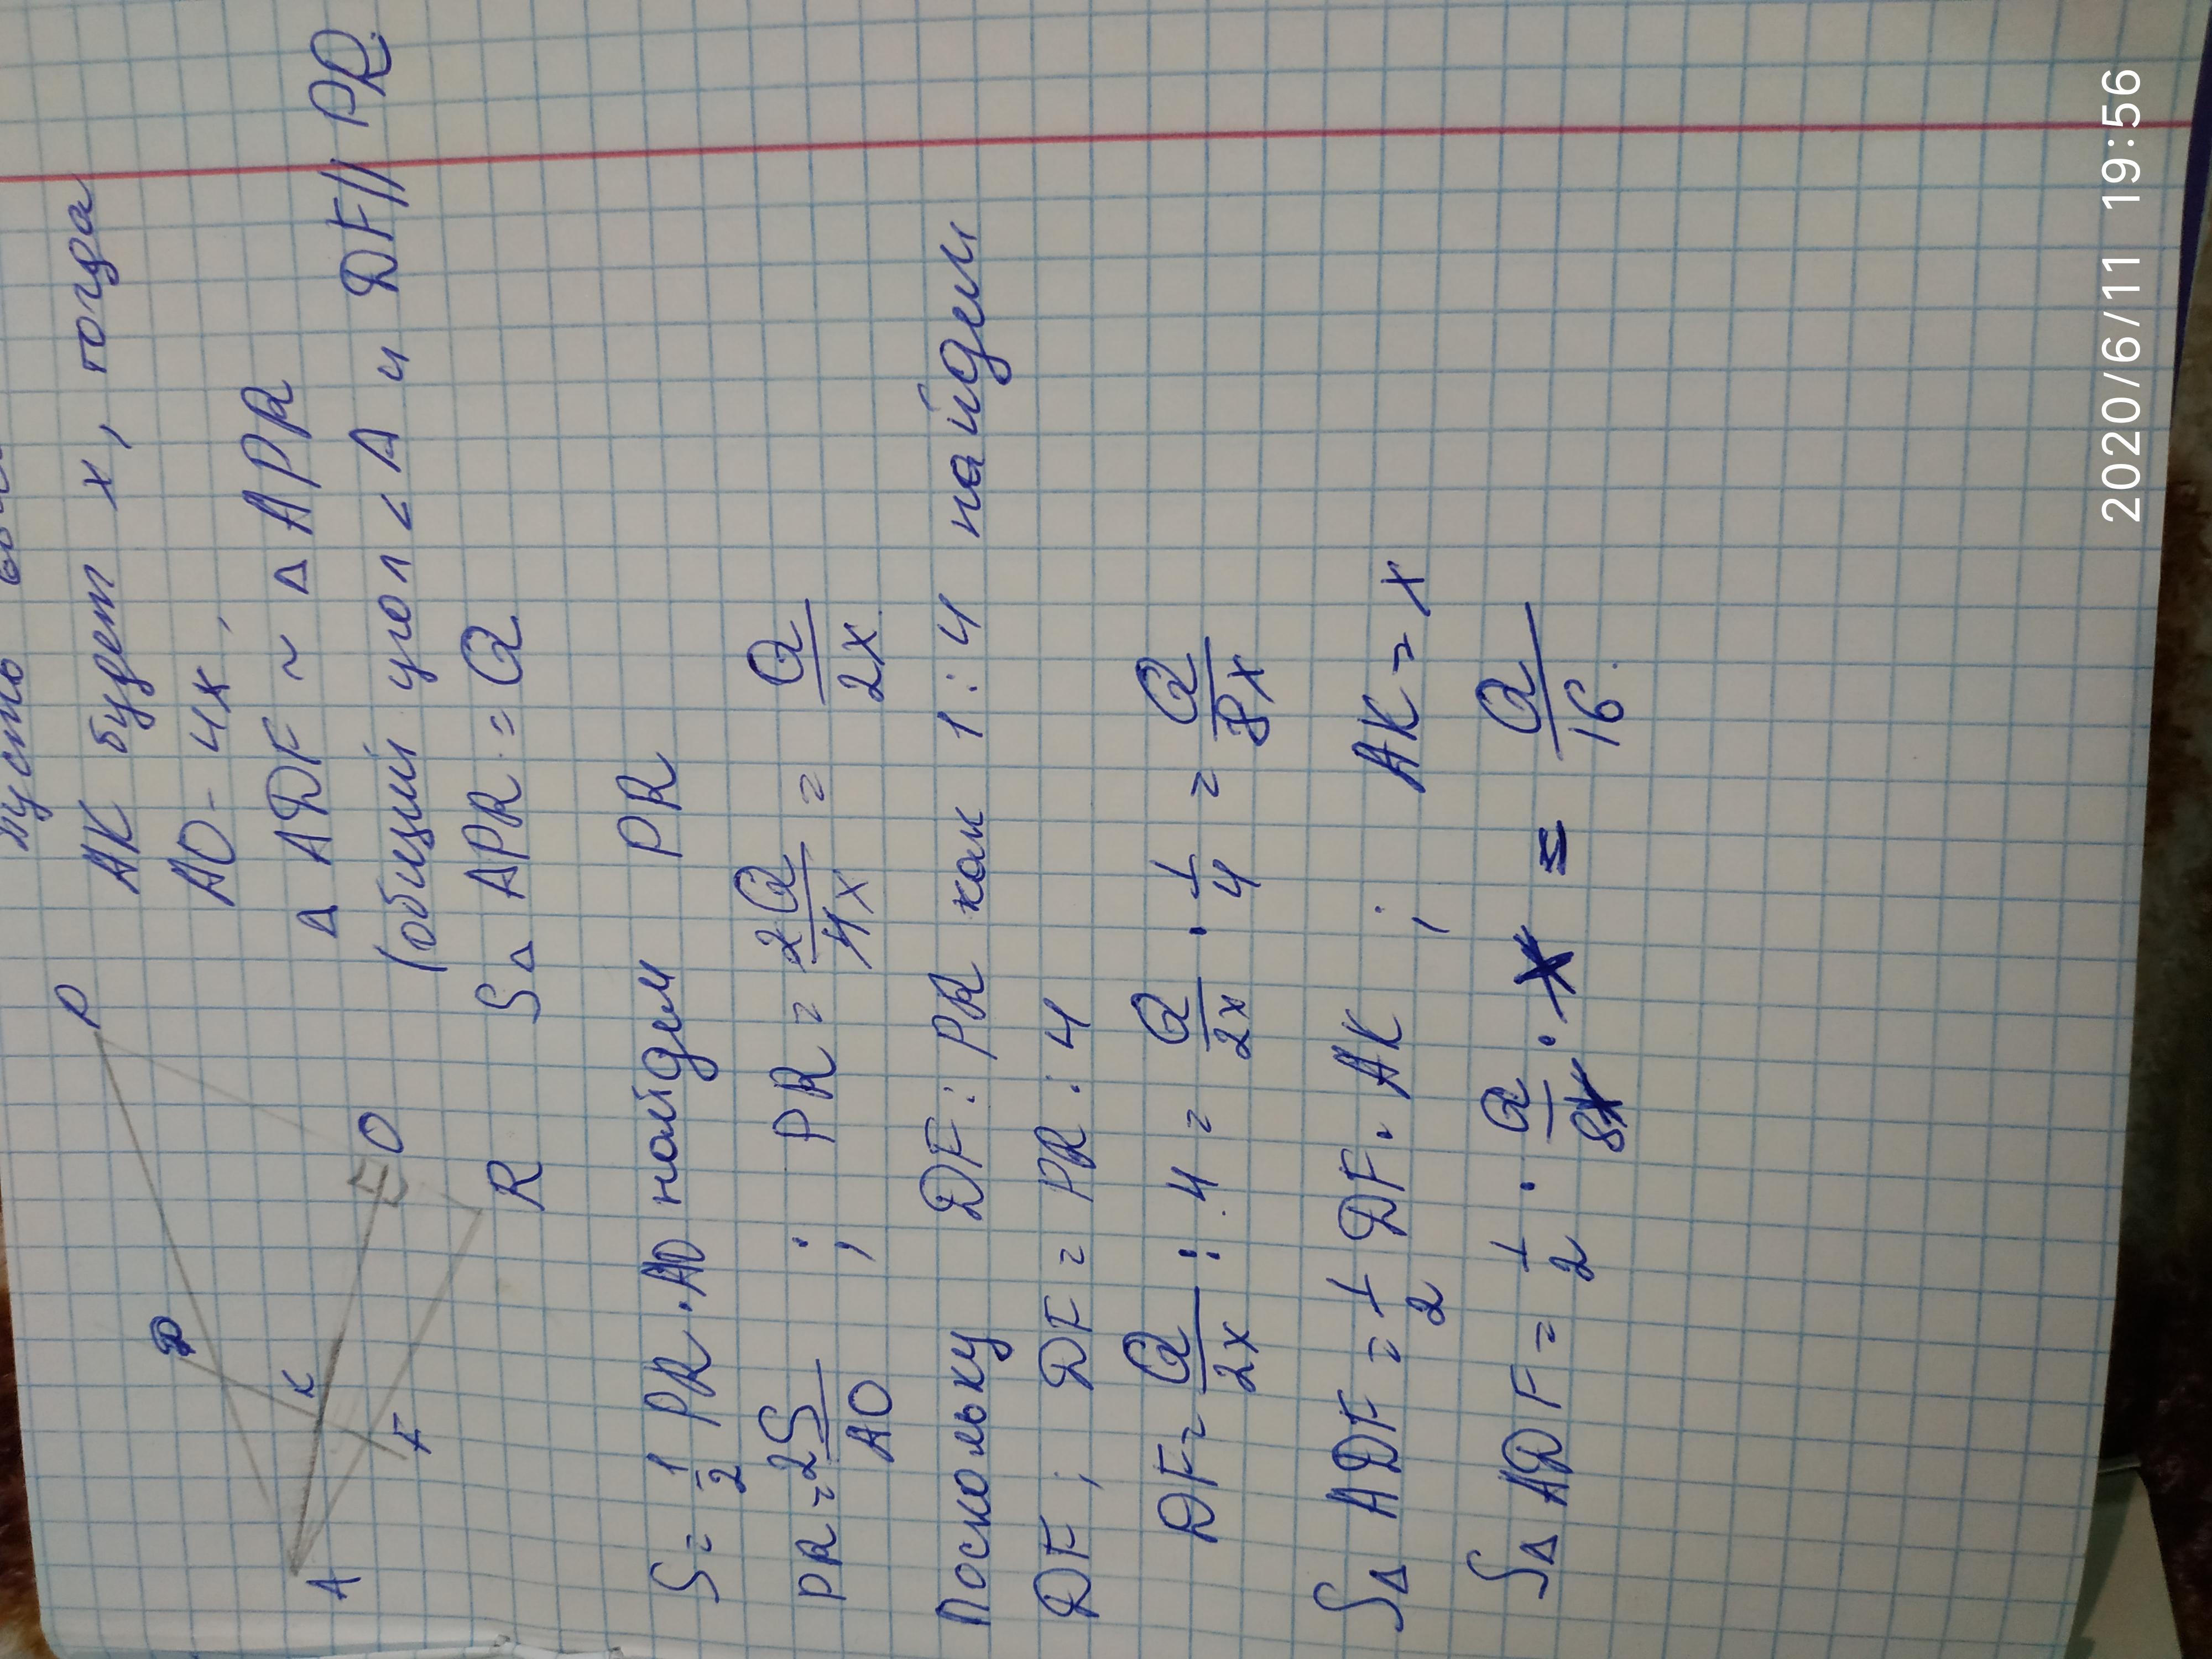 пусть
АК будет х, тогда
АО - 4х.
Δ АDF ~ Δ APR
(общий угол < А и DF || PR.
S Δ APR = Q
P
D
K
O
F
A
R
S = 1/2 PR · AO найдем PR
PR = 2S/AO ; PR = 2Q/4x = Q/2x
Поскольку DF : PR как 1 : 4 найдем
DF ; DF = PR : 4
DF = Q/2x : 4 = Q/2x · 1/4 = Q/8x
S Δ ADF = 1/2 DF · AK ; AK = x
S Δ ADF = 1/2 · Q/8x · x = Q/16.
2020/6/11 19:56